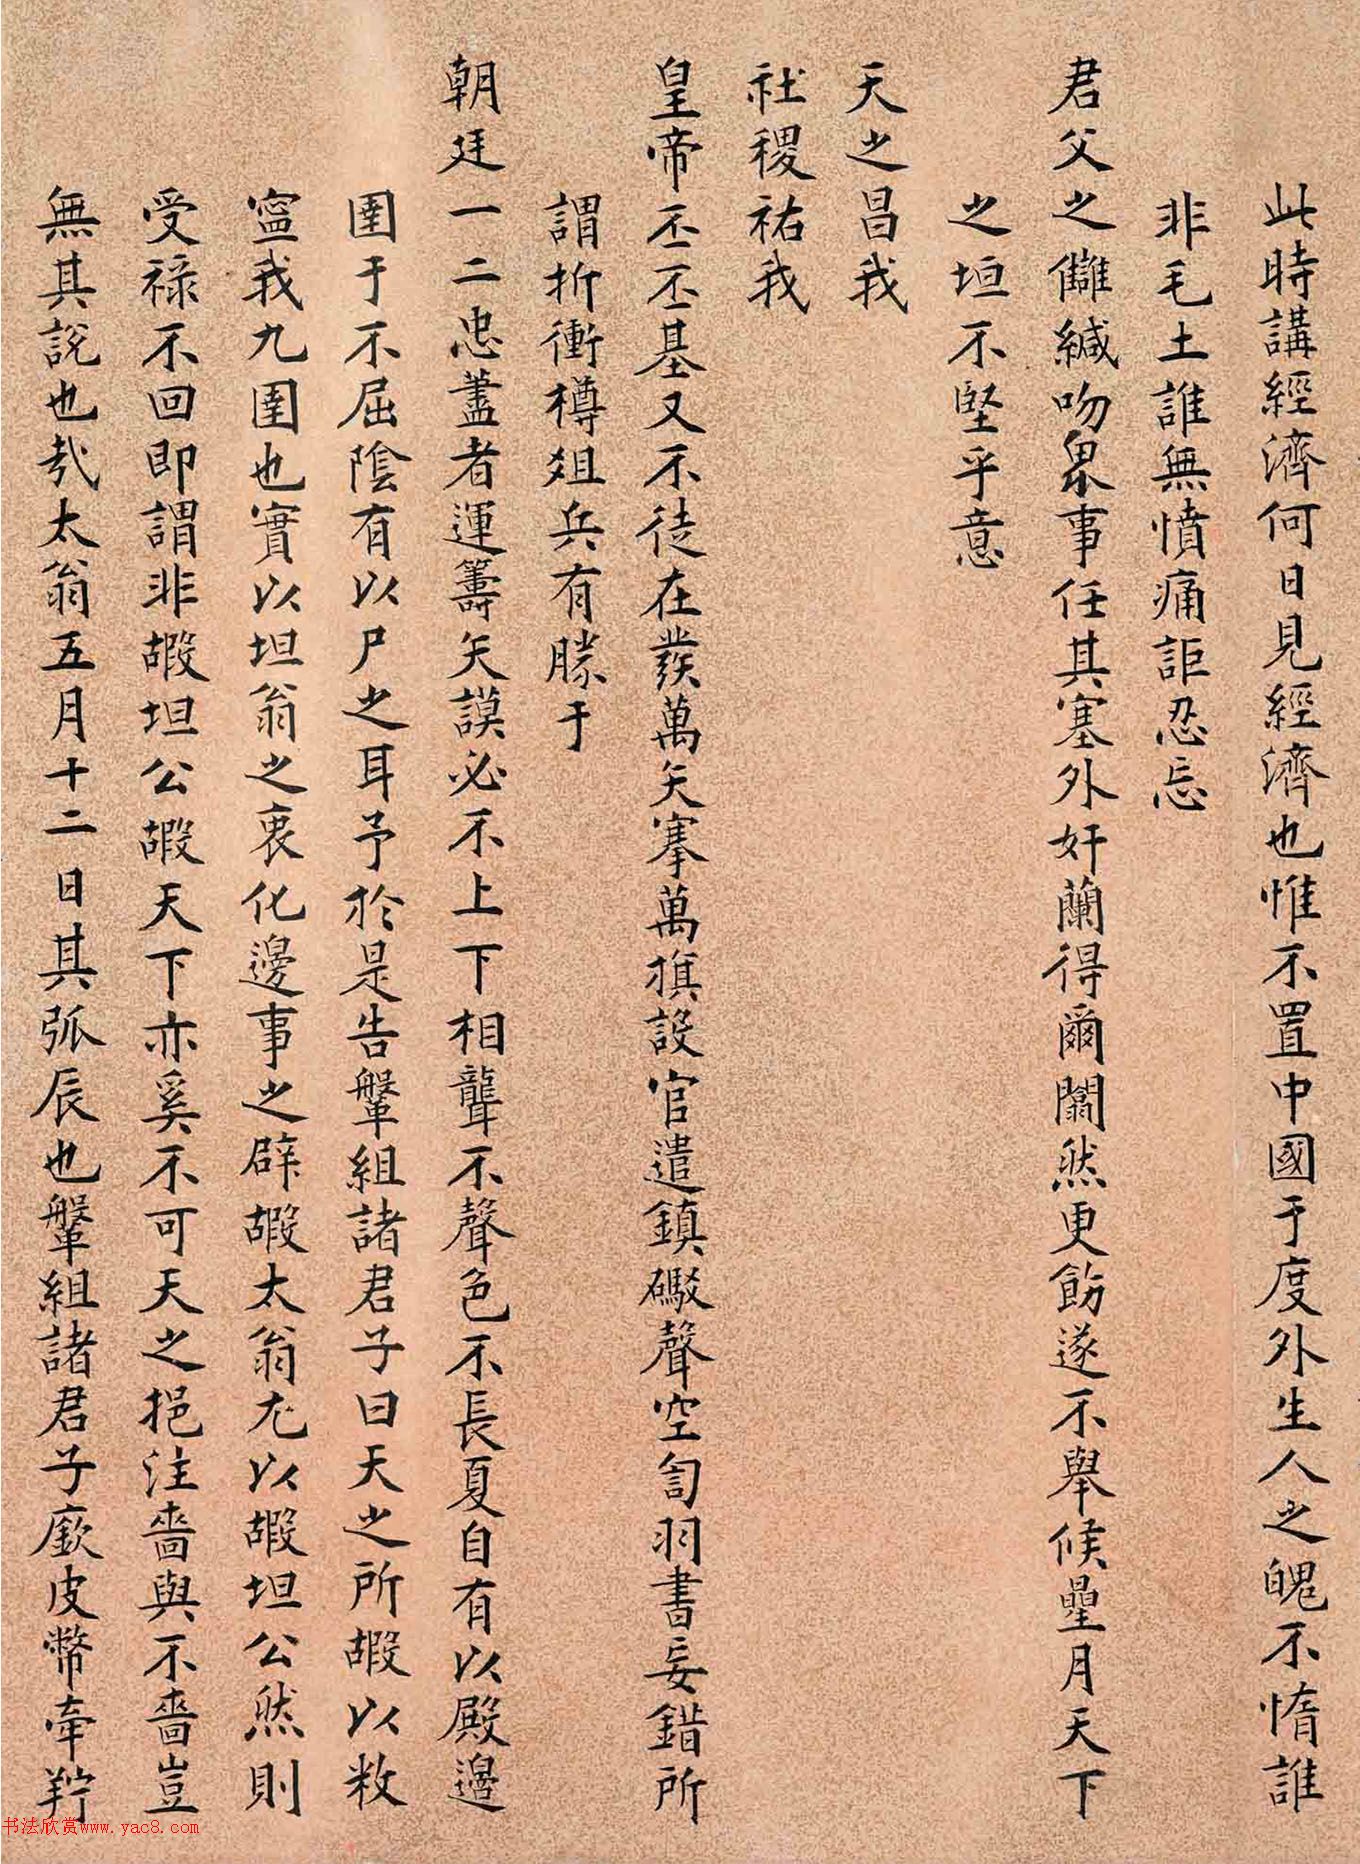 此時講經濟何日見經濟也惟不置中國于度外生人之魄不惰誰
非毛土誰無憤痛詎忍忘
君父之讎緘吻眾事任其塞外奸蘭得爾闒然更飭遂不舉候曐月天下
之垣不堅乎意
天之昌我
社稷祐我
皇帝丕丕基又不徒在發萬矢搴萬旗設官遣鎮礮聲空訇羽書妄錯所
謂折衝樽俎兵有勝于
朝廷一二忠藎者運籌矢謨必不上下相聾不聲色不長夏自有以殿邊
圉于不屈陰有以尸之耳予於是告鞶組諸君子曰天之所嘏以敉
寍我九圉也實以坦翁之衷化邊事之辟嘏太翁尤以嘏坦公然則
受祿不回即謂非嘏坦公嘏天下亦奚不可天之挹注嗇與不嗇豈
無其說也哉太翁五月十二日其弧辰也鞶組諸君子廞皮幣牽羜
书法欣赏www.yac8.com